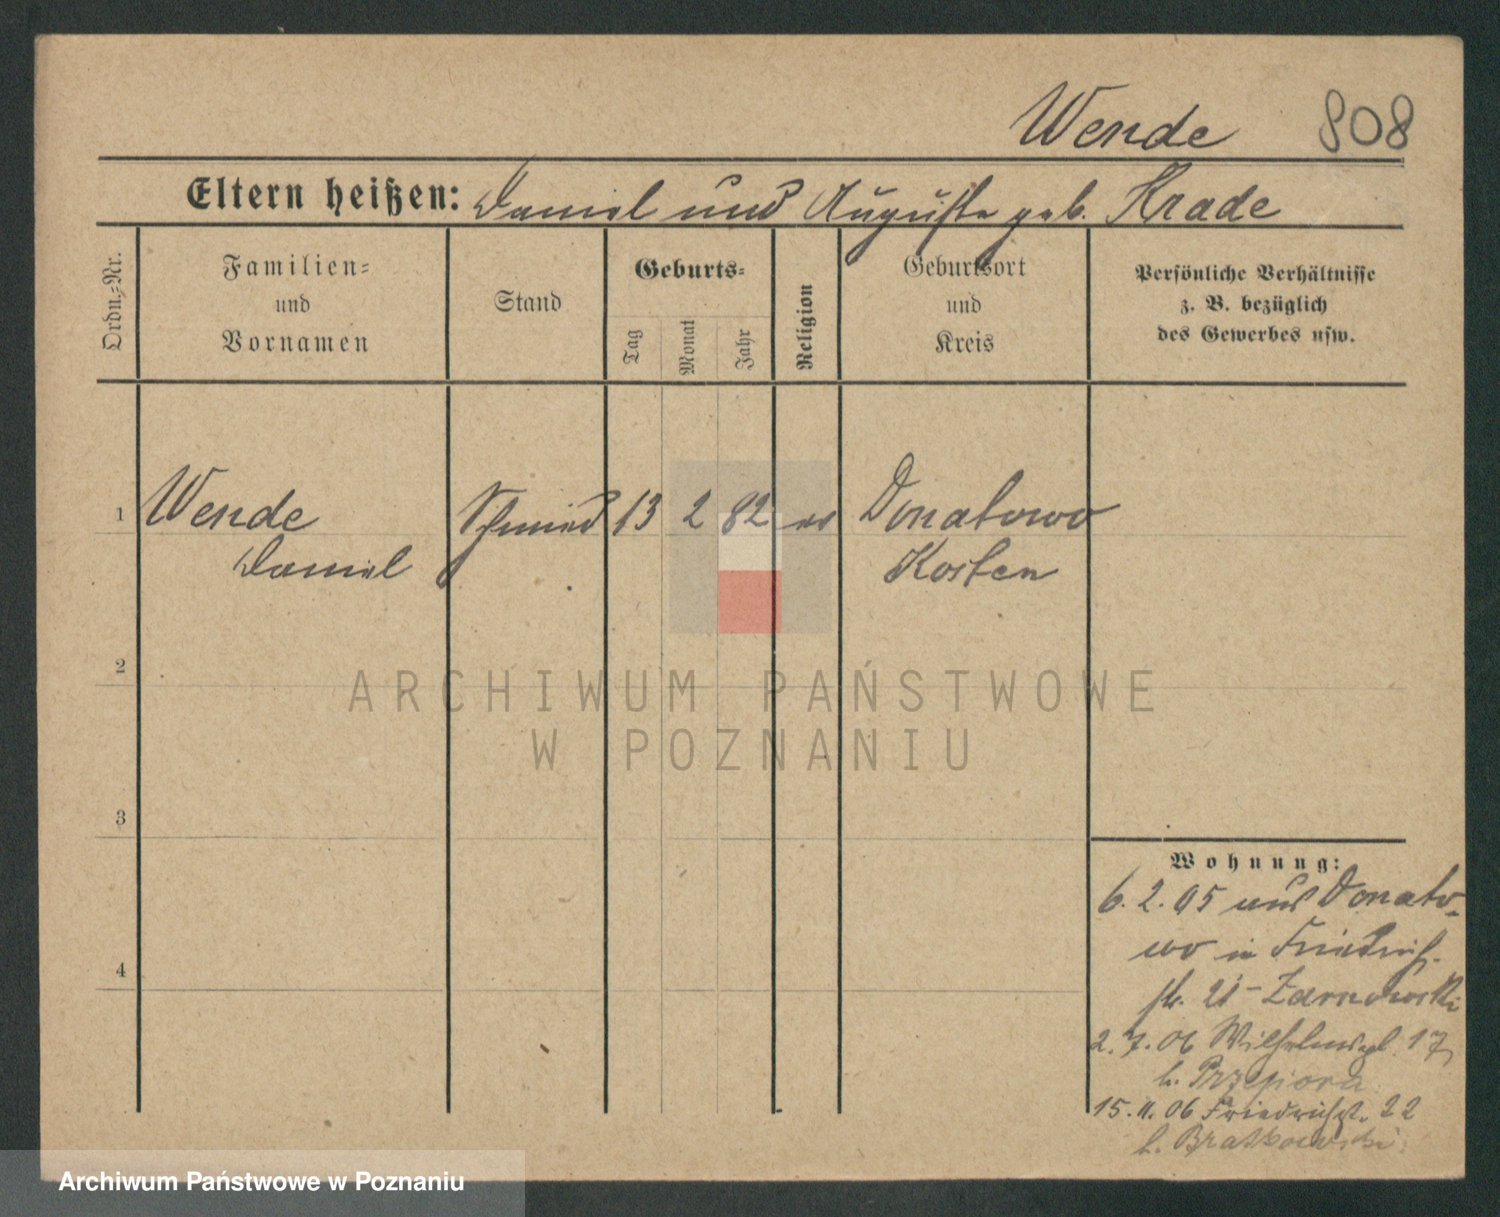 Wende 808
Eltern heißen: Daniel und Auguste geb. Krade
Ordn.-Nr.
Familien-
und
Vornamen
Stand
Geburts-
Tag
Monat
Jahr
Religion
Geburtsort
und
Kreis
Persönliche Verhältnisse
z. B. bezüglich
des Gewerbes usw.
1 Wende Schmied 13 2 82 ev Donatowo
Daniel Kosten
2
ARCHIWUM PAŃSTWOWE
W POZNANIU
3
Wohnung:
6.2.05 aus Donato-
wo in Friedrich-
str. 21 - Zarnowski
4
2.7.06 Wilhelmspl. 17
b. Przepiora
15.11.06 Friedrichst. 22
b. Bratkowski
Archiwum Państwowe w Poznaniu